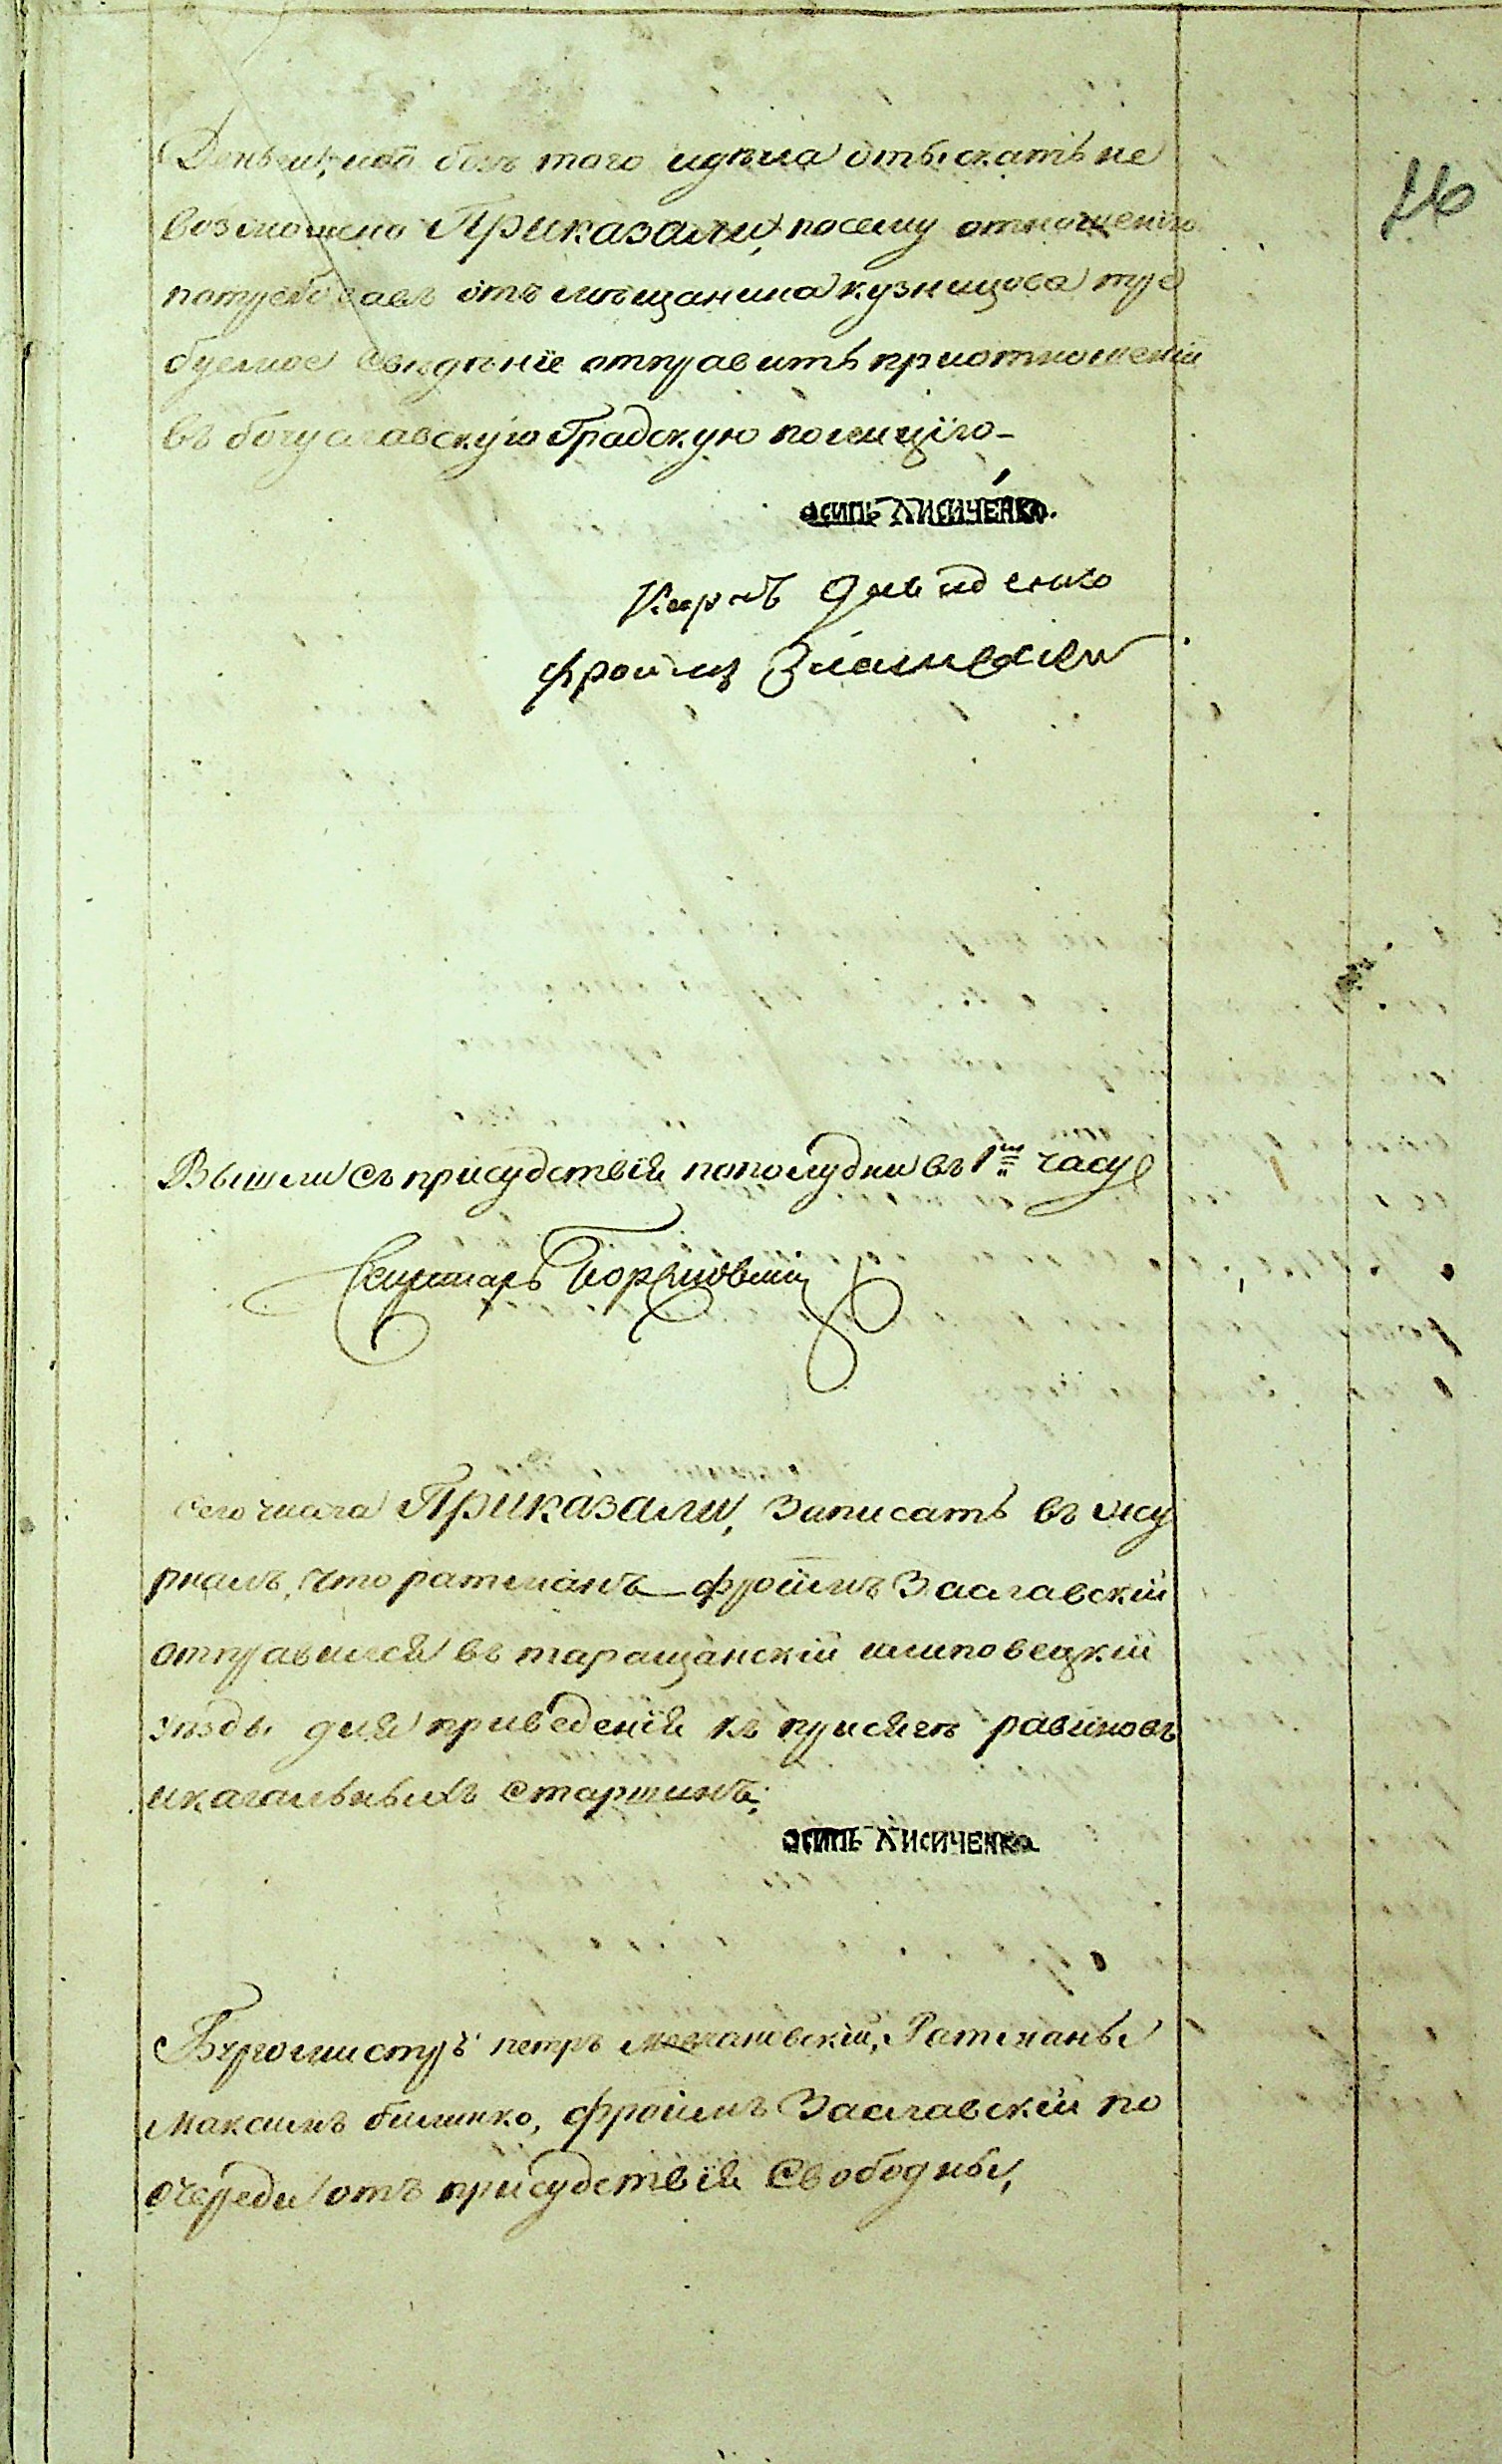 76
Деньги, ибо безъ того идѣла отыскать не
возможно Приказали, посему отношенію
потребовавъ отъ мѣщанина кузнецова тре
буемое свидѣніе отправить приотношеніи
въ богуславскую Градскую полицію–
осипъ Лисиченко.
Карпъ Давиденко
Фроимъ
Вышли съ присудствія пополудни въ 1м часу
Секретарь
сего числа Приказали, Записать въ жу
рналъ, что ратманъ фроимъ Заславскій
отправился въ таращанскій илиповецкій
уѣзды для приведенія къ присягѣ равиновъ
икагальныхъ старшинъ;
осипъ Лисиченко
Бургомистръ петръ Ратманы
Максимъ билинко, фроимъ Заславскій по
очереди отъ присудствія Свободны,